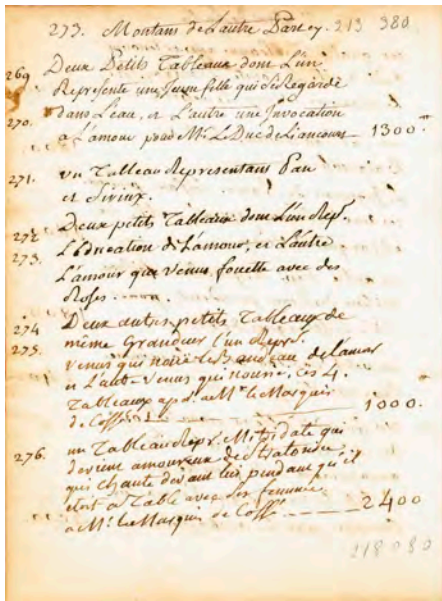 273. Montans de Lautre Part cy. 213 380
269 Deux Petits Tableaux dont L'un
Represente une Jeune fille qui se Regarde
270. dans L'eau, et L'autre une Invocation
a L'amour pour Mr. Le Duc de Liancourt 1300.
271. un Tableau Representant Pan
et Sirinx.
272 Deux petits Tableaux dont L'un Repr.
273. L'Education de L'amour, et L'autre
L'amour que Venus fouette avec des
Roses
274 Deux autres petits Tableaux de
275. même Grandeur l'un Repr.
Venus qui noue le Bandeau de lamour
et L'autre Venus qui nourrie, ces 4.
Tableaux ap. a Mr. le Marquis
de Cossé 1000.
276. un Tableau Repr. Mitridate qui
devient amoureux de Stratonice
qui chante devant lui pendant qu'il
etoit a Table avec ses femmes.
a Mr. le Marquis de Cossé 2400
218080